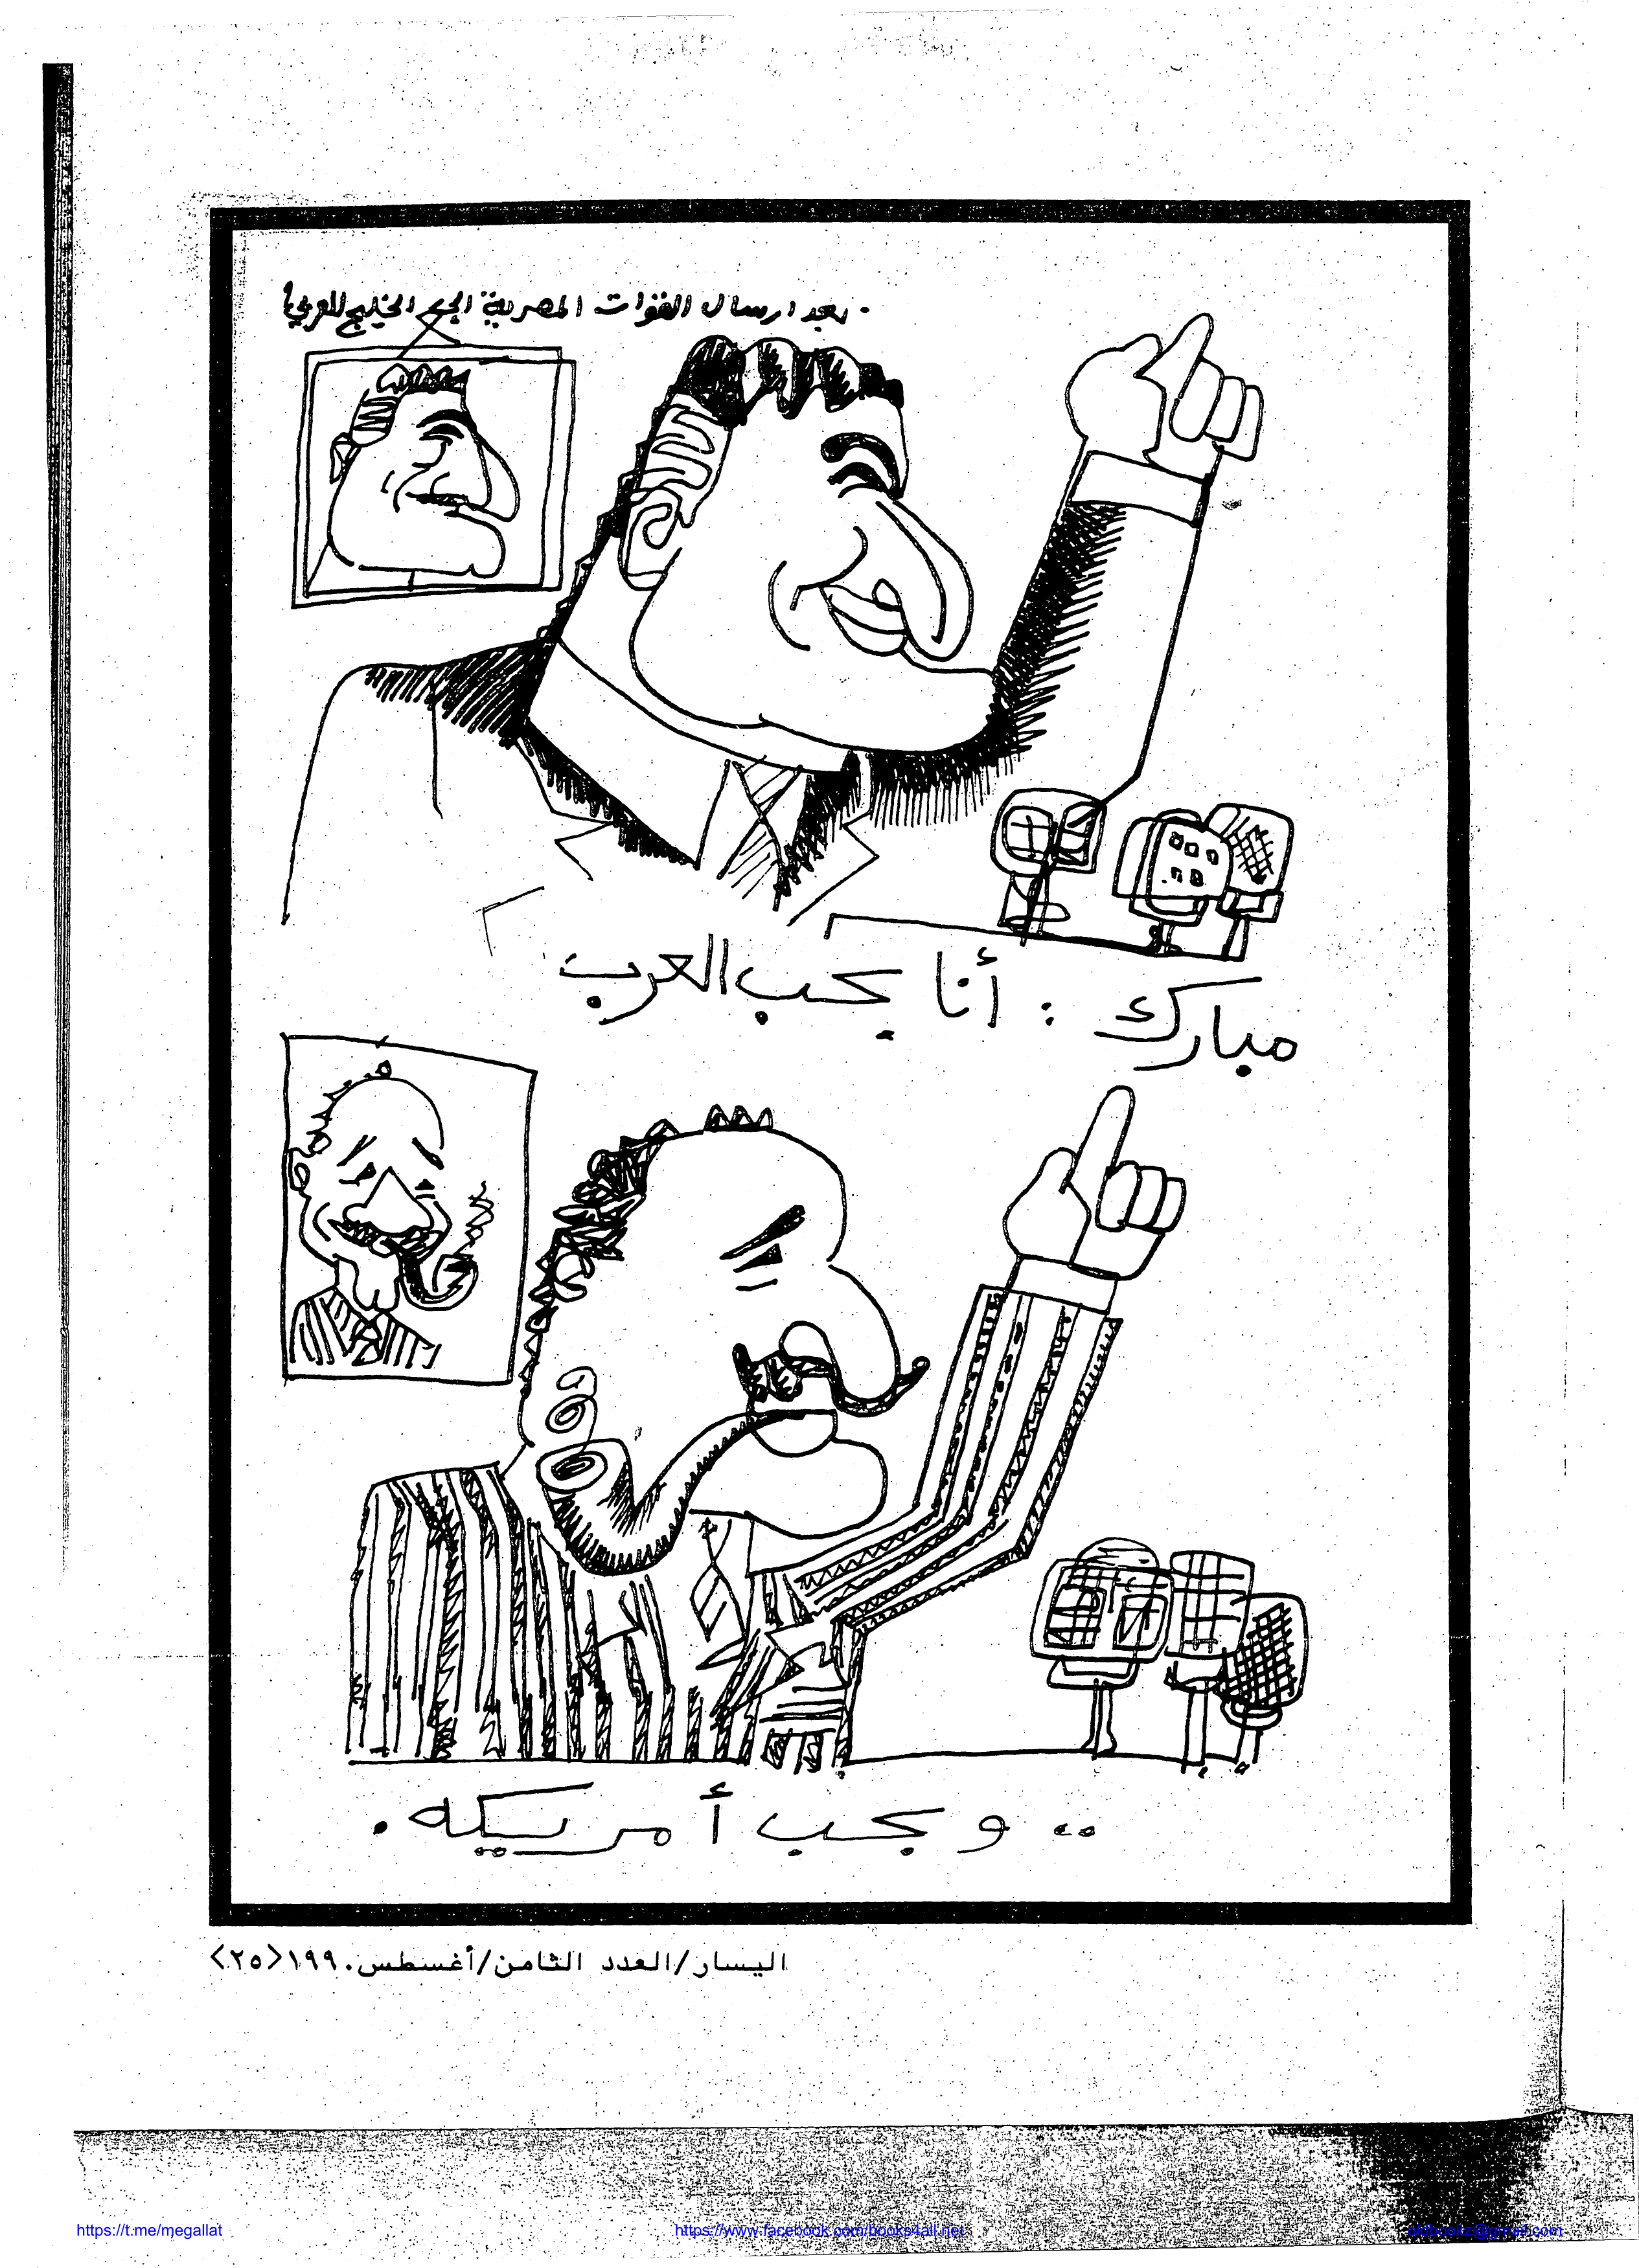 . بعد ارسال القوات المصرية الى الخليج العربي!
مبارك : أنا بحب العرب
.. وبحب أمريكه .
اليسار/العدد الثامن/أغسطس ١٩٩٠<٢٥>
https://t.me/megallat
https://www.facebook.com/books4all.net
oldbookz@gmail.com